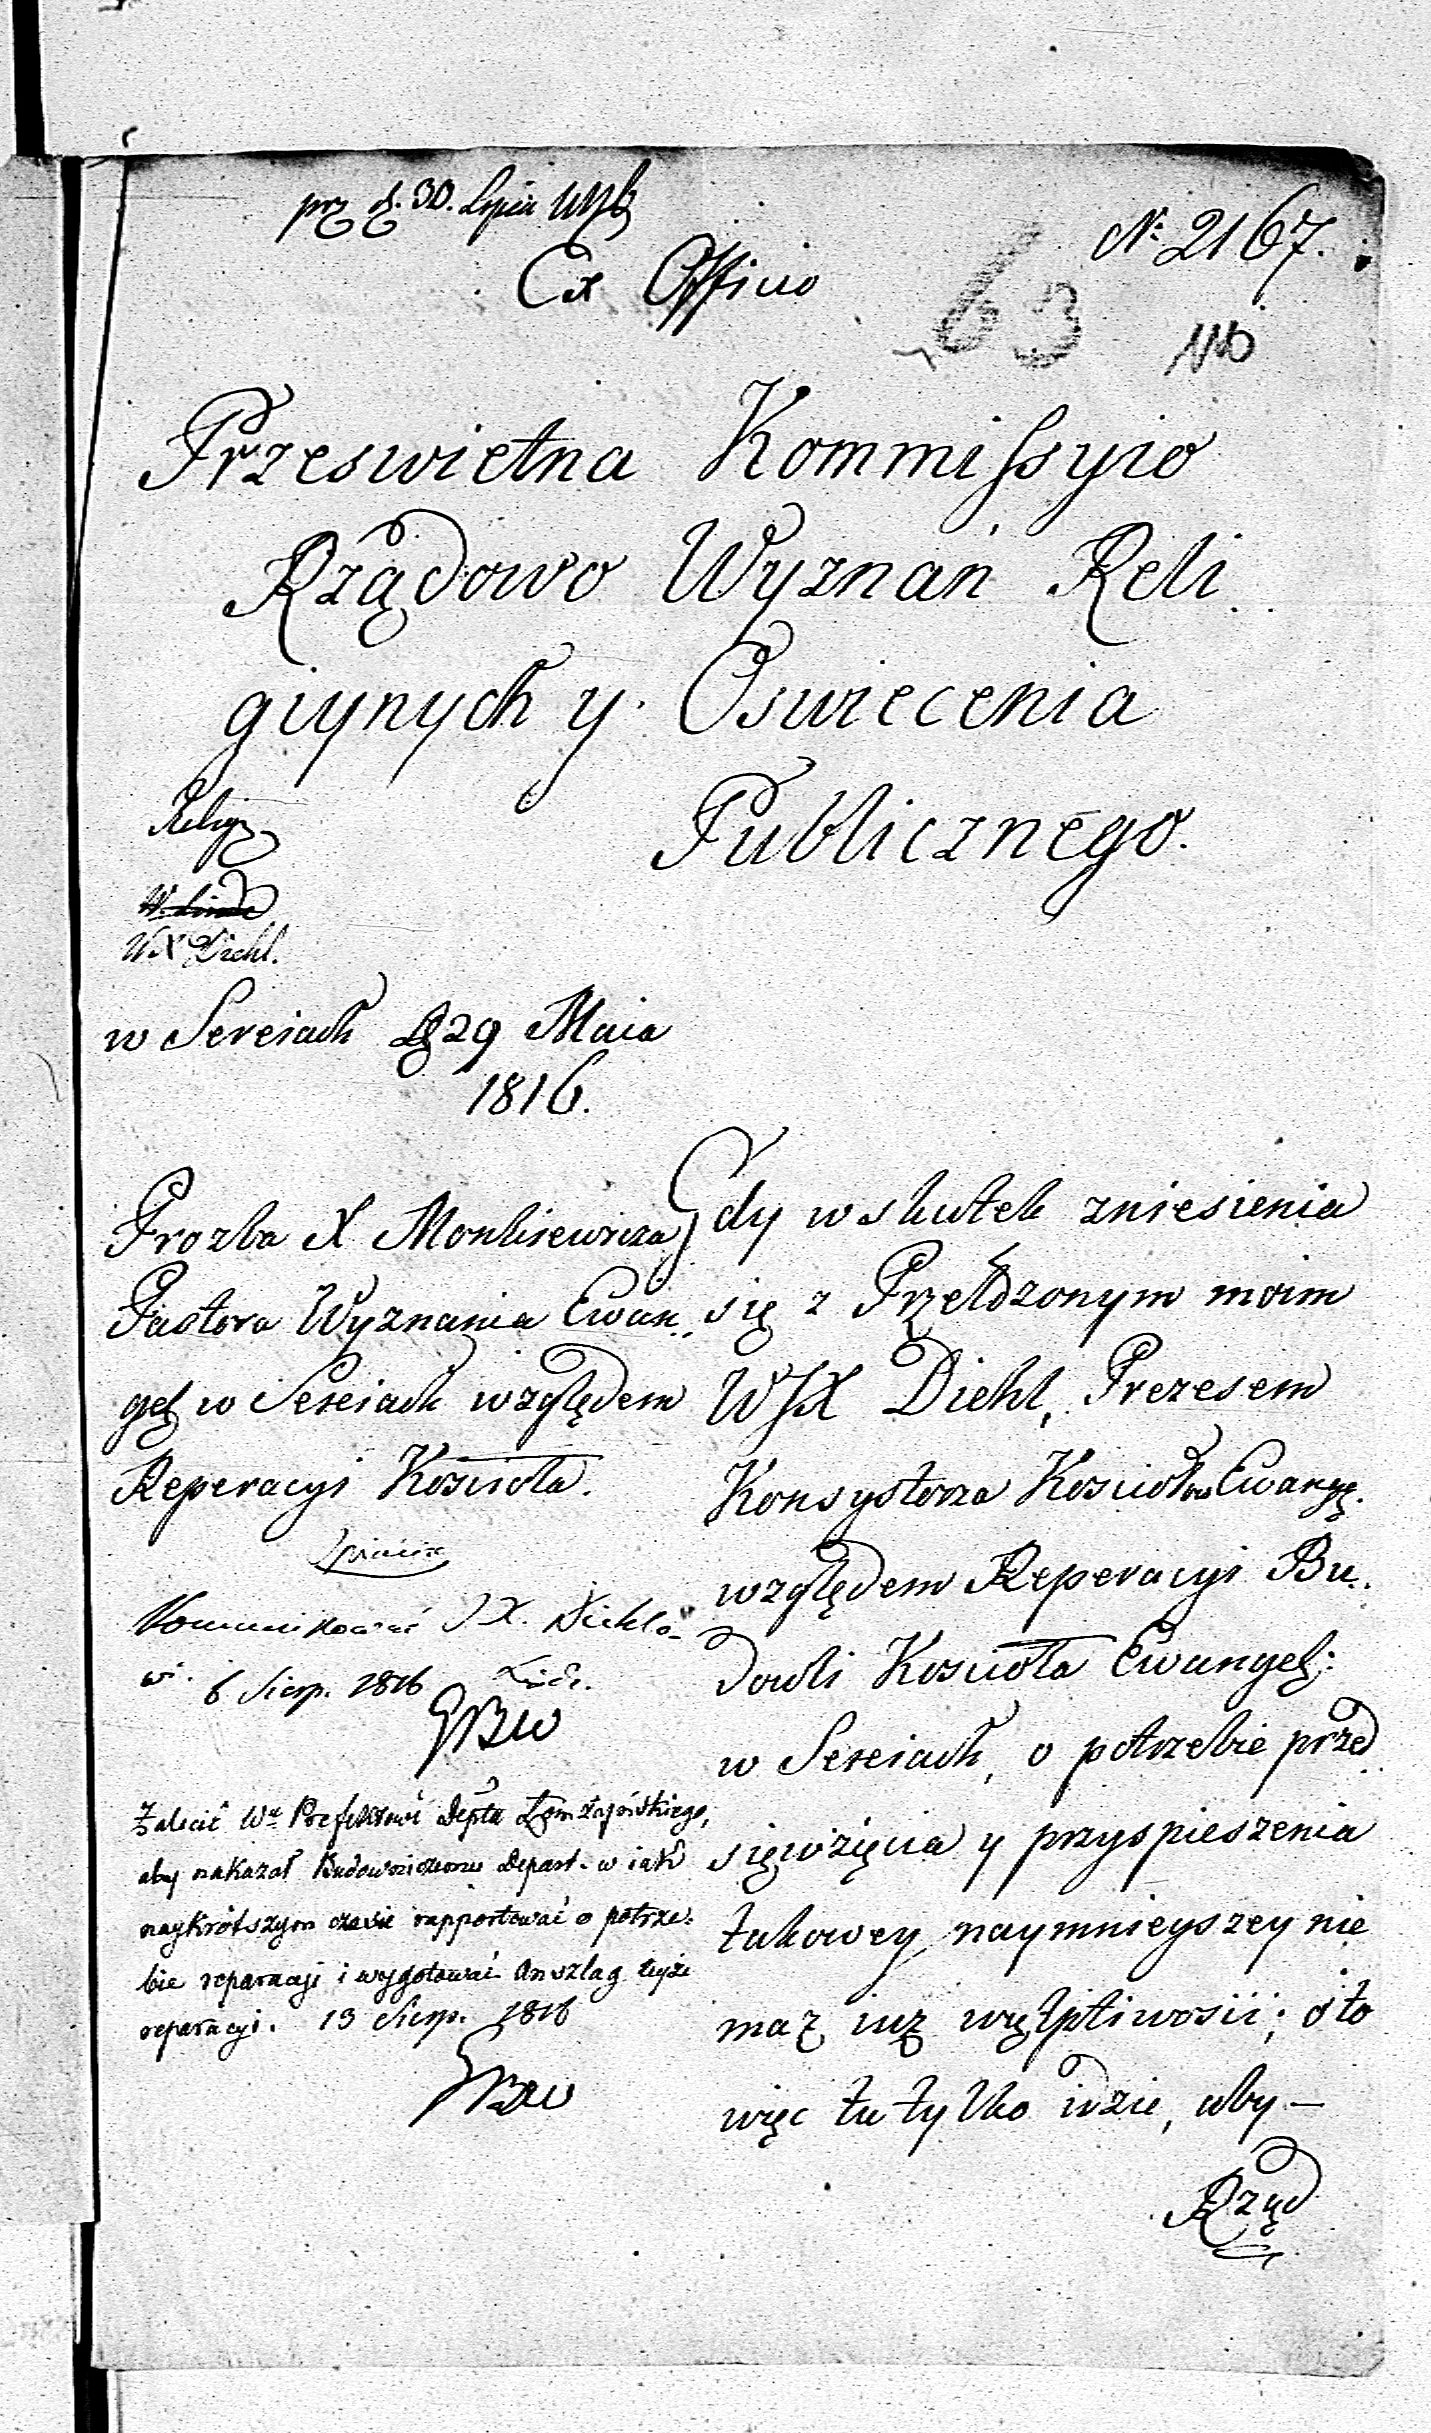 prz d. 30. Lipca
Ex Officio
No 2167.
63
Przeswietna Kommissyio
Rządowo Wyznań Reli
giynych y Oswiecenia
Publicznego.
Religy
W. Linde
W. X Diehl.
w Sereiach D 29 Maia
1816.
Prozba X Monkiewicza
Pastora Wyznania Ewan
gel w Sereiach względem
Reperacyi Kościoła.
Kommunikować JX. Diehlo-
wi. 6 Sierp. 1816 Linde.
Zalecić Wu Prefektowi Depta Łomżyńskiego,
aby nakazał Budowniczemu Depart. w iak
naykrótszym czasie rapportować o potrze-
bie reparacyi i wygotować Anszlag teyże
reparacyi. 13 Sierp. 1816
Gdy w skutek zniesienia
się z Przełożonym moim
WJX Diehl, Prezesem
Konsystorza Kosciołow Ewang.
względem Reperacyi Bu
dowli Koscioła Ewangel:
w Sereiach, o potrzebie przed
sięwzięcia y przyspieszenia
takowey naymnieyszey nie
masz iuz wątpliwosci; o to
więc tu tylko idzie, aby —
Rząd